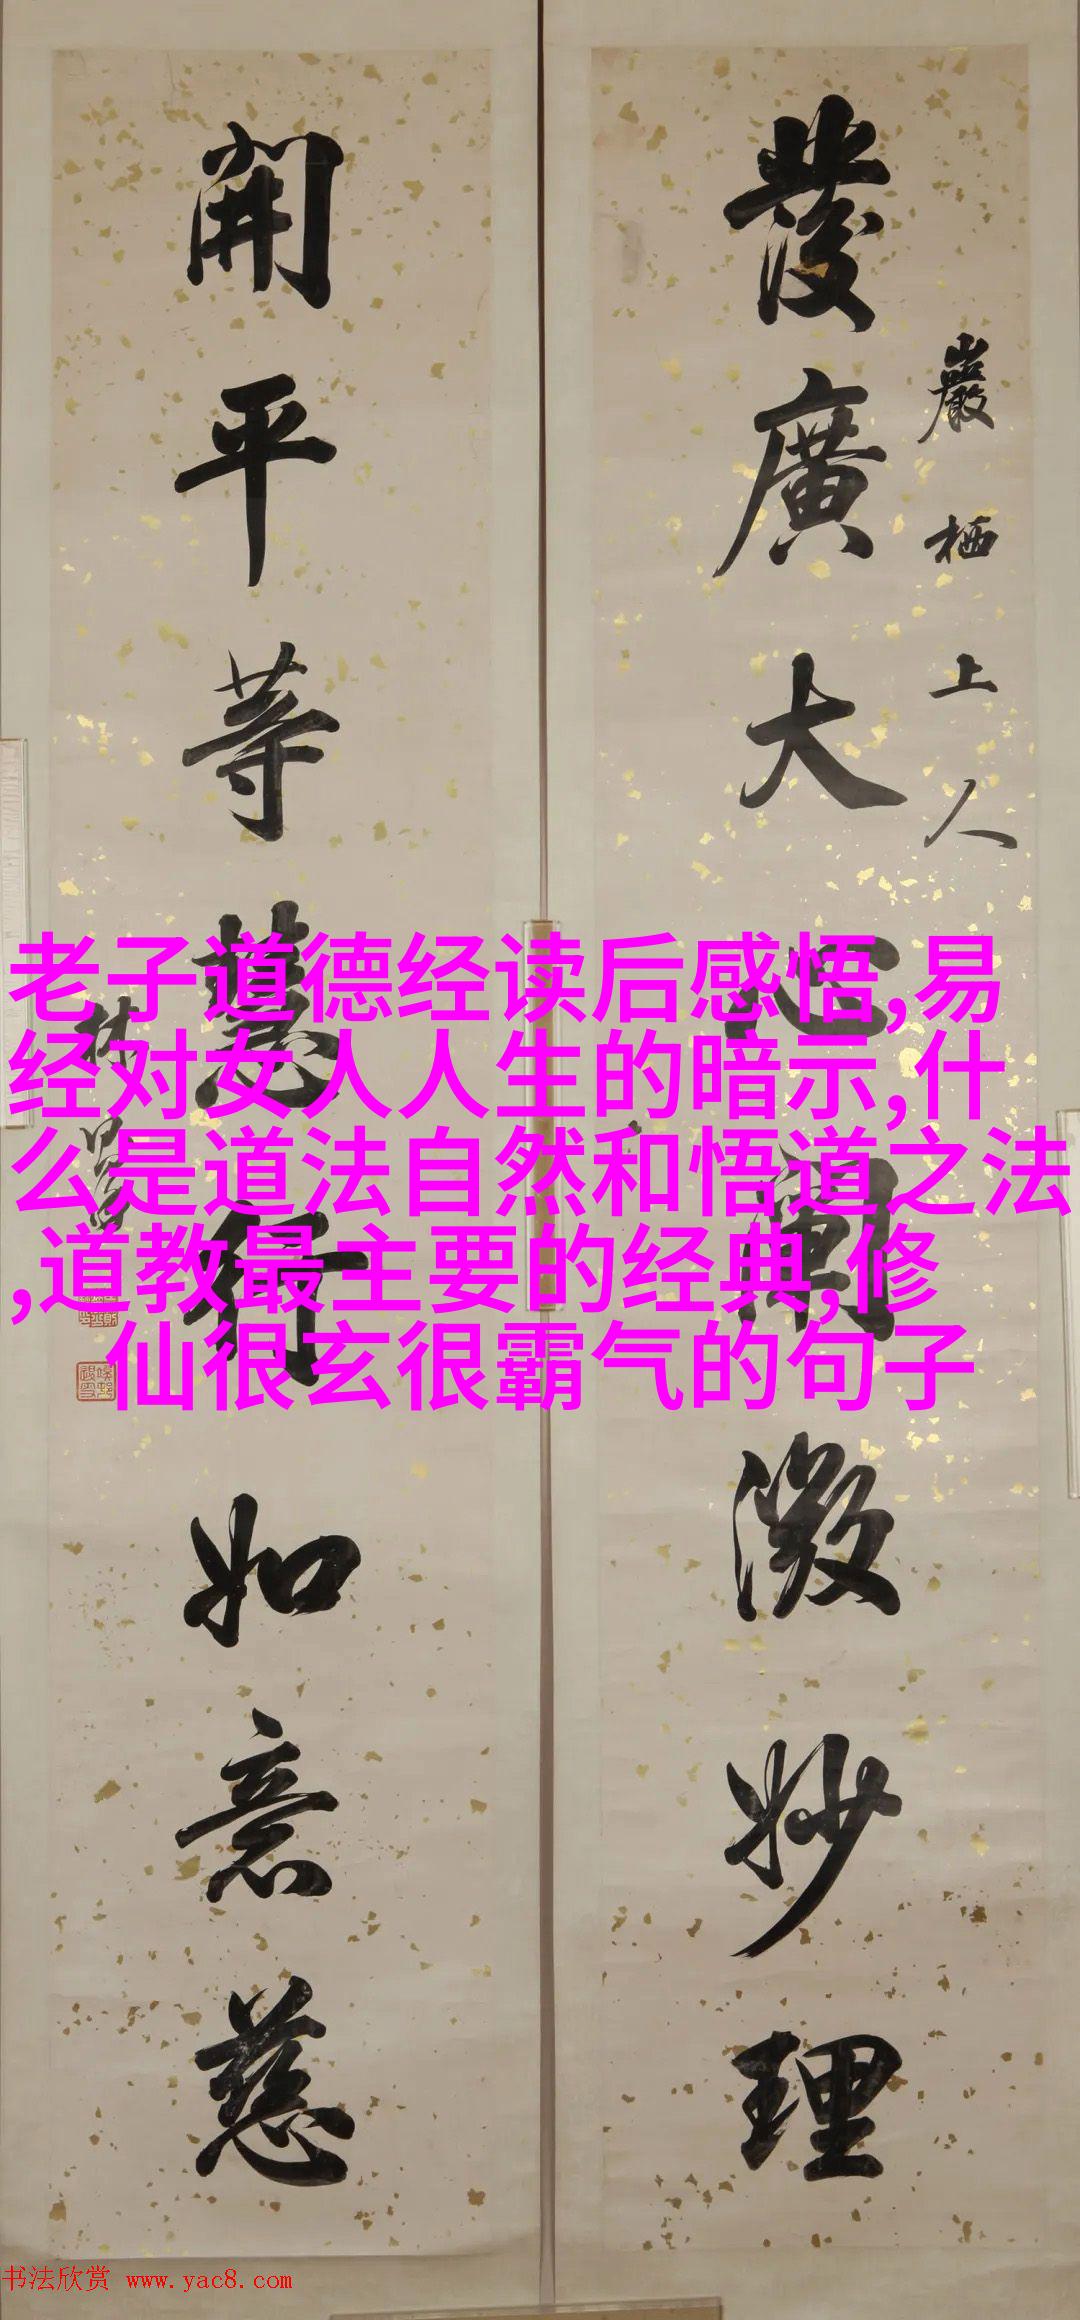 巖栖上人
發廣大心闡微妙理
開平等慧行如意慈
林
老子道德经读后感悟,易
经对女人人生的暗示,什
么是道法自然和悟道之法
,道教最主要的经典,修
仙很玄很霸气的句子
书法欣赏 www.yac8.com